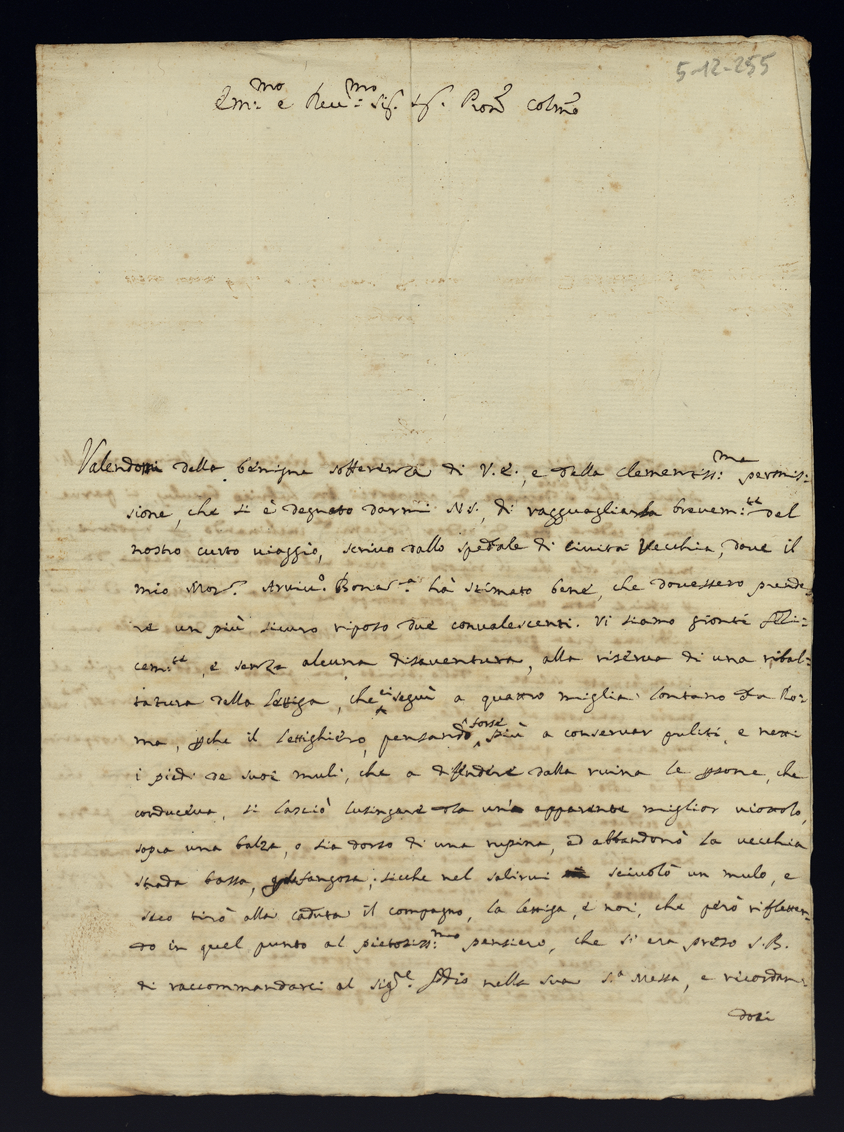 5-12-255
Em:mo e Reu:mo Sig.r Sig.r Prone Colmo
Valendomi della benigna sofferenza di V.E., e della clementiss:ma permis:
sione, che si è degnato darmi N.S., di ragguagliarla brevem:te del
nostro curto viaggio, scrivo dallo spedale di Civita Vecchia, dove il
mio Mor Bona ha stimato bene, che dovessero prende:
re un più sicuro riposo due convalescenti. Vi siamo gionti feli:
cem:te, e senza alcuna disaventura, alla riserva di una ribal:
tatura della lettiga, che ci seguì a quattro miglia lontano da Ro:
ma, pche il lettighiero, pensando forse più a conservar puliti, e netti
i piedi de suoi muli, che a difendere dalla ruina le psone, che
conduceva, si lasciò lusingare da un apparente miglior viottolo,
sopra una balza, o sia dorso di una rupina, ed abbandonò la vecchia
strada bassa, fangosa; sicche nel salirvi scivolò un mulo, e
seco tirò alla caduta il compagno, la lettiga, e noi, che però rifletten:
do in quel punto al pietosiss:mo pensiero, che si era preso S.B.
di raccommandarci al Sig.re Iddio nella sua S.a Messa, e ricordan:
dosi